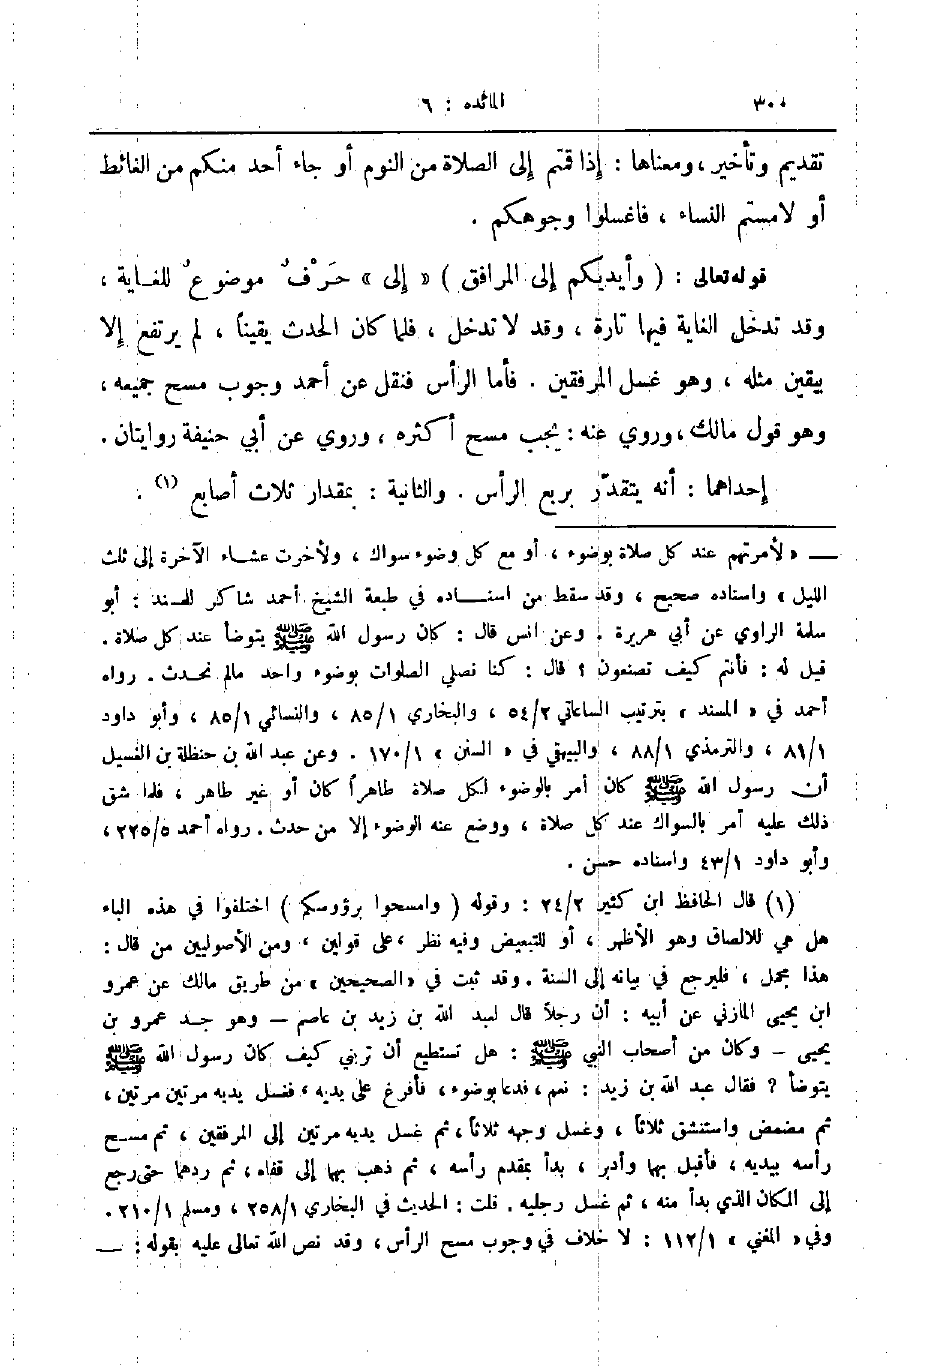 ٣٠٠ المائده : ٦
تقديم وتأخير ، ومعناها : إذا قمتم إلى الصلاة من النوم أو جاء أحد منكم من الغائط
أو لامستم النساء ، فاغسلوا وجوهكم .
قوله تعالى : ( وأيديكم إلى المرافق ) « إلى » حَرْفٌ موضوعٌ للغاية ،
وقد تدخل الغاية فيها تارة ، وقد لا تدخل ، فلما كان الحدث يقيناً ، لم يرتفع إلا
بيقين مثله ، وهو غسل المرفقين . فأما الرأس فنقل عن أحمد وجوب مسح جميعه ،
وهو قول مالك ، وروي عنه : يجب مسح أكثره ، وروي عن أبي حنيفة روايتان .
إحداهما : أنه يتقدّر بربع الرأس . والثانية : بمقدار ثلاث أصابع (١) .
ــ « لأمرتهم عند كل صلاة بوضوء ، أو مع كل وضوء سواك ، ولأخرت عشاء الآخرة إلى ثلث
الليل » واسناده صحيح ، وقد سقط من اسناده في طبعة الشيخ أحمد شاكر للمسند : أبو
سلمة الراوي عن أبي هريرة . وعن انس قال : كان رسول الله ﷺ يتوضأ عند كل صلاة .
قيل له : فأنتم كيف تصنعون ؟ قال : كنا نصلي الصلوات بوضوء واحد مالم نحدث . رواه
أحمد في « المسند » بترتيب الساعاتي ٥٤/٢ ، والبخاري ٨٥/١ ، والنسائي ٨٥/١ ، وأبو داود
٨١/١ ، والترمذي ٨٨/١ ، والبيهقي في « السنن » ١٧٠/١ . وعن عبد الله بن حنظلة بن الغسيل
أن رسول الله ﷺ كان أمر بالوضوء لكل صلاة طاهراً كان أو غير طاهر ، فلما شق
ذلك عليه أمر بالسواك عند كل صلاة ، ووضع عنه الوضوء إلا من حدث . رواه أحمد ٢٢٥/٥ ،
وأبو داود ٤٣/١ واسناده حسن .
(١) قال الحافظ ابن كثير ٢٤/٢ : وقوله ( وامسحوا برؤوسكم ) اختلفوا في هذه الباء
هل هي للالصاق وهو الأظهر ، أو للتبعيض وفيه نظر ، على قولين ، ومن الأصوليين من قال :
هذا مجمل ، فليرجع في بيانه إلى السنة . وقد ثبت في « الصحيحين » من طريق مالك عن عمرو
ابن يحيى المازني عن أبيه : أن رجلاً قال لعبد الله بن زيد بن عاصم – وهو جد عمرو بن
يحيى – وكان من أصحاب النبي ﷺ : هل تستطيع أن تريني كيف كان رسول الله ﷺ
يتوضأ ? فقال عبد الله بن زيد : نعم ، فدعا بوضوء ، فأفرغ على يديه ، فغسل يديه مرتين مرتين ،
ثم مضمض واستنشق ثلاثاً ، وغسل وجهه ثلاثاً ، ثم غسل يديه مرتين إلى المرفقين ، ثم مسح
رأسه بيديه ، فأقبل بها وأدبر ، بدأ بمقدم رأسه ، ثم ذهب بها إلى قفاه ، ثم ردهما حتى رجع
إلى المكان الذي بدأ منه ، ثم غسل رجليه . قلت : الحديث في البخاري ٢٥٨/١ ، ومسلم ٢١٠/١ .
وفي « المغني » ١١٢/١ : لا خلاف في وجوب مسح الرأس ، وقد نص الله تعالى عليه بقوله : ــ